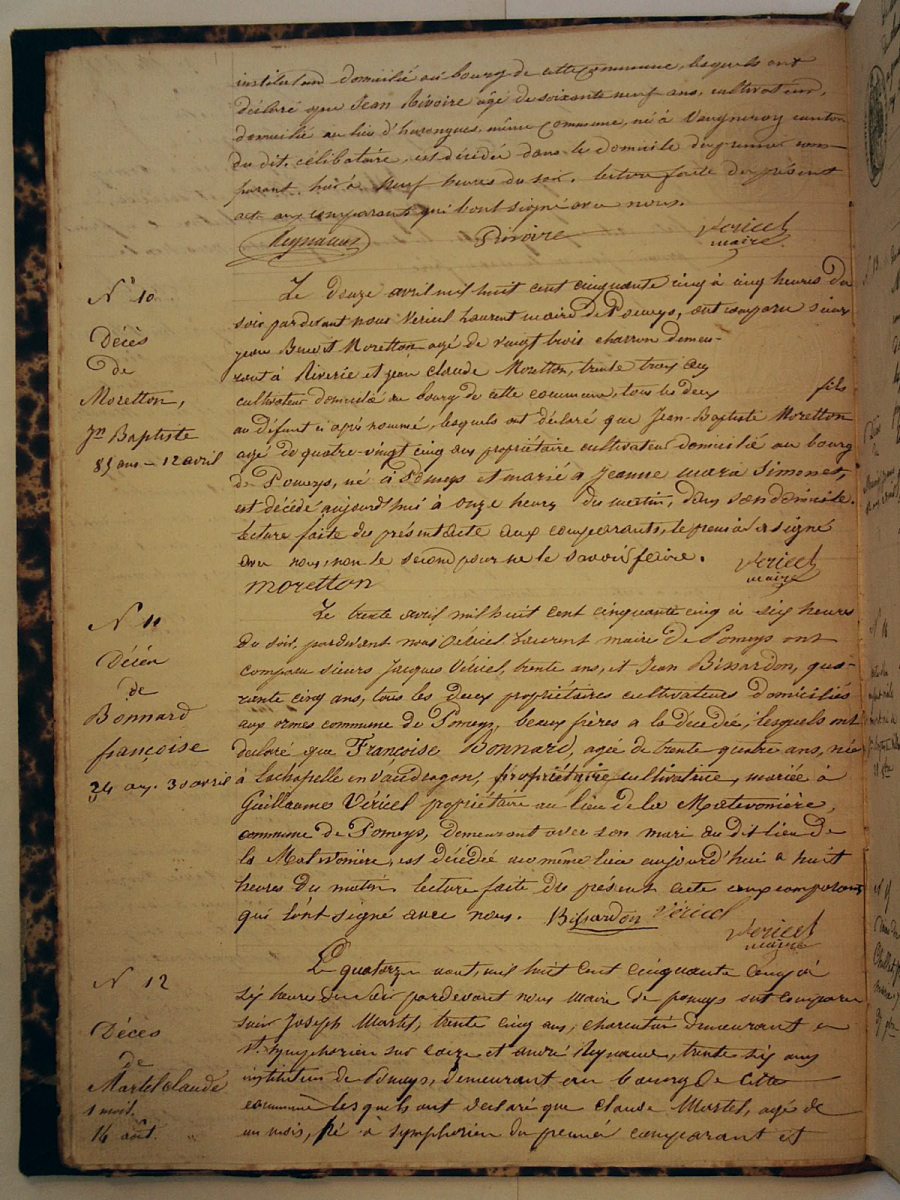 instituteur domicilié au bourg de cette commune, lesquels ont
déclaré que Jean Rivoire âgé de soixante neuf ans, cultivateur,
domicilié au lieu d'hurongues, même commune, né à Vaugneray canton
du dit, célibataire, est décédé dans le domicile du premier com-
parant hier à neuf heures du soir. Lecture faite du présent
acte aux comparants qui l'ont signé avec nous.
Reynaud Rivoire Vericel
maire
N° 10
Décès
de
Moretton,
Jn Baptiste
85 ans - 12 avril
Le douze avril mil huit cent cinquante cinq à cinq heures du
soir pardevant nous Vericel Laurent maire de Pomeys, ont comparu sieurs
Benoit Moretton agé de vingt trois charron demeu-
rant à Riverie et jean Claude Moretton, trente trois ans
cultivateur domicilié au bourg de cette commune, tous les deux fils
au défunt ci après nommé, lesquels ont déclaré que Jean-Baptiste Moretton
agé de quatre-vingt cinq ans propriétaire cultivateur domicilié au bourg
de Pomeys, né à Pomeys et marié à Jeanne Simonet,
est décédé aujourd'hui à onze heures du matin, dans son domicile.
Lecture faite du présent acte aux comparants, le premier a signé
avec nous, non le second pour ne le savoir faire. Vericel
moretton maire
N° 11
Décès
de
Bonnard
françoise
34 ans. 30 avril
Le trente avril mil huit cent cinquante cinq à six heures
du soir, pardevant nous Vericel Laurent maire de Pomeys ont
comparu sieurs Jacques Vericel, trente ans, et Jean Bissardon, qua-
rante cinq ans, tous les deux propriétaires cultivateurs domiciliés
aux ormes commune de Pomeys, beaux frères a la décédée, lesquels ont
declaré que Françoise Bonnard, agée de trente quatre ans, née
à Lachapelle en Vaudragon, propriétaire cultivatrice, mariée à
Guillaume Véricel propriétaire au lieu de la Matevonière,
commune de Pomeys, demeurant avec son mari au dit lieu de
la Matevonière, est décédée au même lieu aujourd'hui a huit
heures du matin. Lecture faite du présent acte aux comparants
qui l'ont signé avec nous. Bissardon Véricel
Vericel
maire
N° 12
Décès
de
Martel Claude
1 mois.
14 août.
Le quatorze aout, mil huit cent cinquante cinq à
six heures du soir pardevant nous Maire de pomeys ont comparu
Joseph Martel, trente cinq ans, demeurant a
St Symphorien sur coize et andré Reynaud, trente six ans
instituteur de Pomeys, demeurant au bourg de Cette
commune lesquels ont déclaré que Claude Martel, agé de
un mois, né a symphorien du premier comparant et